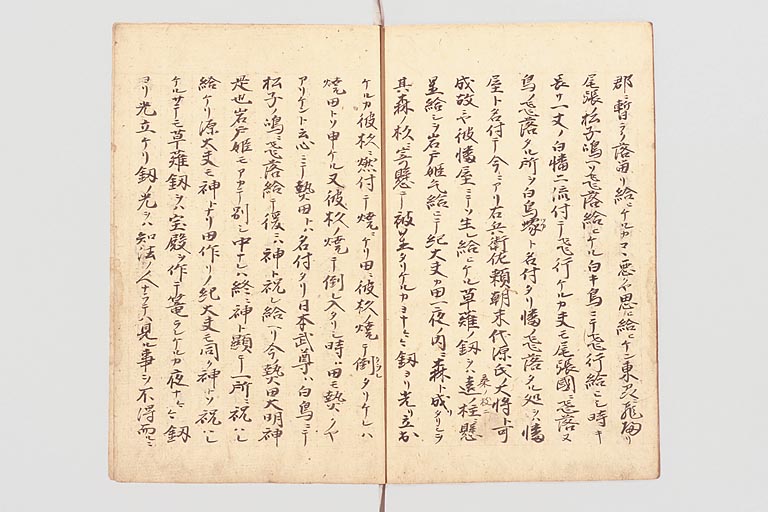 郡ニ暫ラク落留リ給ニケルカマタ悪クヤ思ヒ給ニケン東ヨリ飛帰リ
尾張ノ松子嶋ヘソ飛落給ニケル白キ鳥ニテ飛行給ヒシ時キ
長サ一丈ノ白幡二流付テ飛行ケルカ丈モ尾張國ニ飛落ヌ
鳥ノ飛落タル所ヲ白鳥塚ト名付タリ幡ノ飛落タル処ヲハ幡
屋ト名付テ今ニアリ右兵衛佐頼朝末代源氏大将ト可
成故ニヤ彼幡屋ニテソ生レ給ヒケル草薙ノ釼ヲハ遠桂懸
置給シヲ岩戸姫乞給ニテ紀大丈カ田一夜ノ内ニ森ト成タリシヲ
其森ノ杉ニ寄懸ニテ被置タリケルカヨナヨナ釼ヨリ光リ立
ケルカ彼杉ニ燃付テ焼ニケリ田ニ彼杉ノ焼テ倒タリケレハ
焼田トソ申ケル又彼杉ノ焼テ倒レ入タリシ時ハ田モ熱クヤ
アリケント云心ニテ熱田トハ名付タリ日本武尊ハ白鳥ニテ
松子ノ嶋ニ飛落給テ後ニハ神ト祝レ給ヘリ今ノ熱田大明神
是也岩戸姫モアカテ別レシ中ナレハ終ニ神ト顕テ一所ニ祝ハレ
給ケリ源大丈モ神トナリ田作リノ紀大丈モ同ク神トソ祝ハレ
ケルサテモ草薙釼ヲハ宝殿ヲ作テ篭ラレケルカ夜ナヨナ釼
ヨリ光立ケリ釼ノ光ヲハ知法ノ人ナラテハ見ル事ヲ不得而ニ